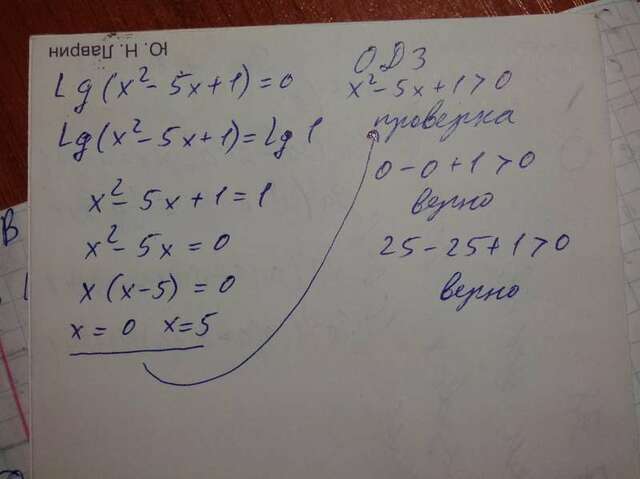 Ю. Н. Лаврин
Lg(x²- 5x+1)=0
Lg(x²- 5x+1)=lg 1
x²- 5x+1=1
x²- 5x=0
x(x-5)=0
x=0 x=5
ОДЗ
x²-5x+1>0
проверка
0-0+1>0
верно
25-25+1>0
верно
В